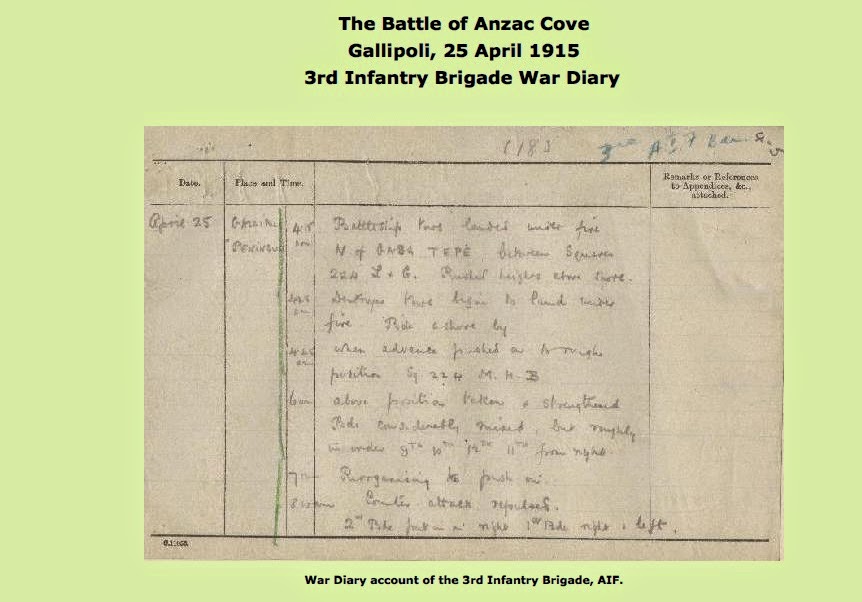 The Battle of Anzac Cove
Gallipoli, 25 April 1915
3rd Infantry Brigade War Diary
(18)
3rd AIF
Date.
Place and Time.
Remarks or References
to Appendices, &c.,
attached.
April 25
4.15 am
Battleship tows landed under fire
PENINSULA
N of GABA TEPE between Squares
224 L & G. Rushed heights above shore.
Destroyer tows began to land under
fire Bde ashore by
when advance pushed on to rough
position Sq 224 M. H. B
6 am
above position taken & strengthened
Bde considerably mixed, but roughly
in order 9th 10th 12th 11th from right
7
Reorganising to push on.
8
Counter attack repulsed.
2nd Bde right 1st Bde right & left.
War Diary account of the 3rd Infantry Brigade, AIF.